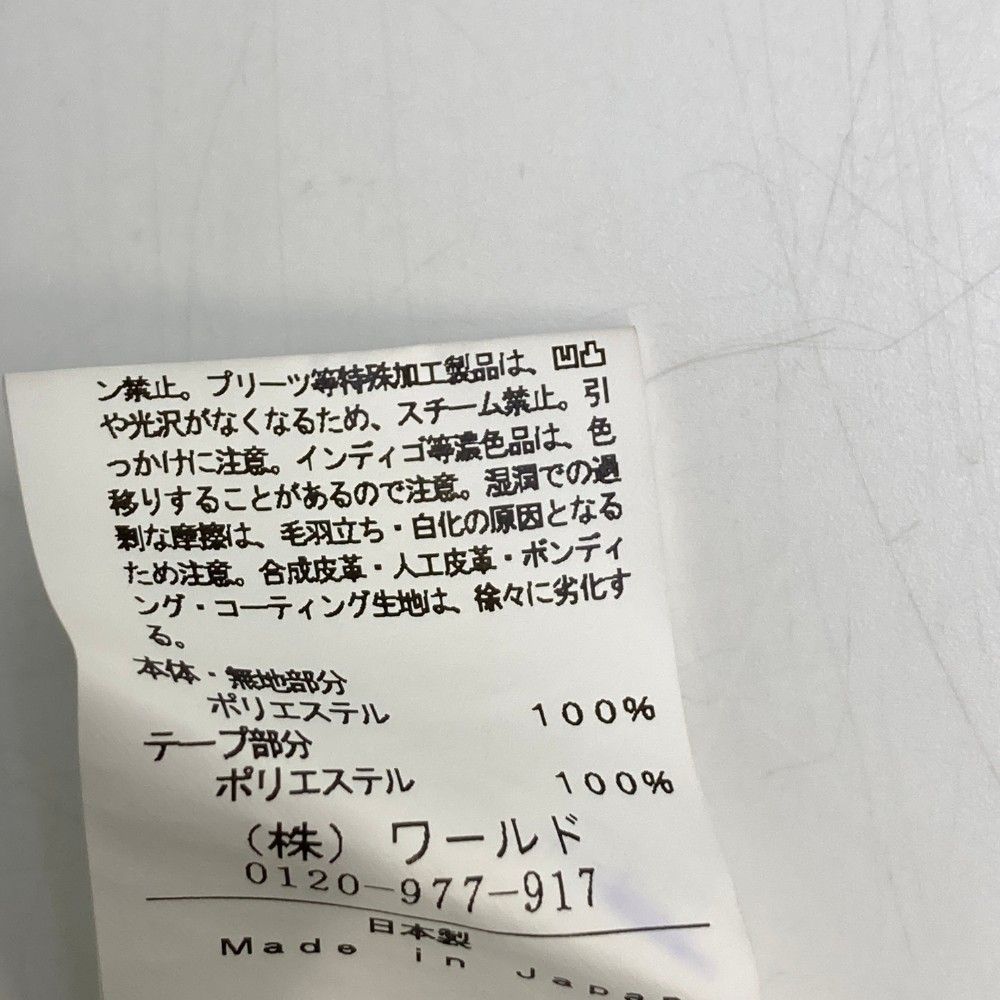 ン禁止。プリーツ等特殊加工製品は、凹凸
や光沢がなくなるため、スチーム禁止。引
っかけに注意。インディゴ等濃色品は、色
移りすることがあるので注意。湿潤での過
剰な摩擦は、毛羽立ち・白化の原因となる
ため注意。合成皮革・人工皮革・ボンディ
ング・コーティング生地は、徐々に劣化す
る。
本体・無地部分
ポリエステル 100%
テープ部分
ポリエステル 100%
(株) ワールド
0120-977-917
日本製
Made in Japan